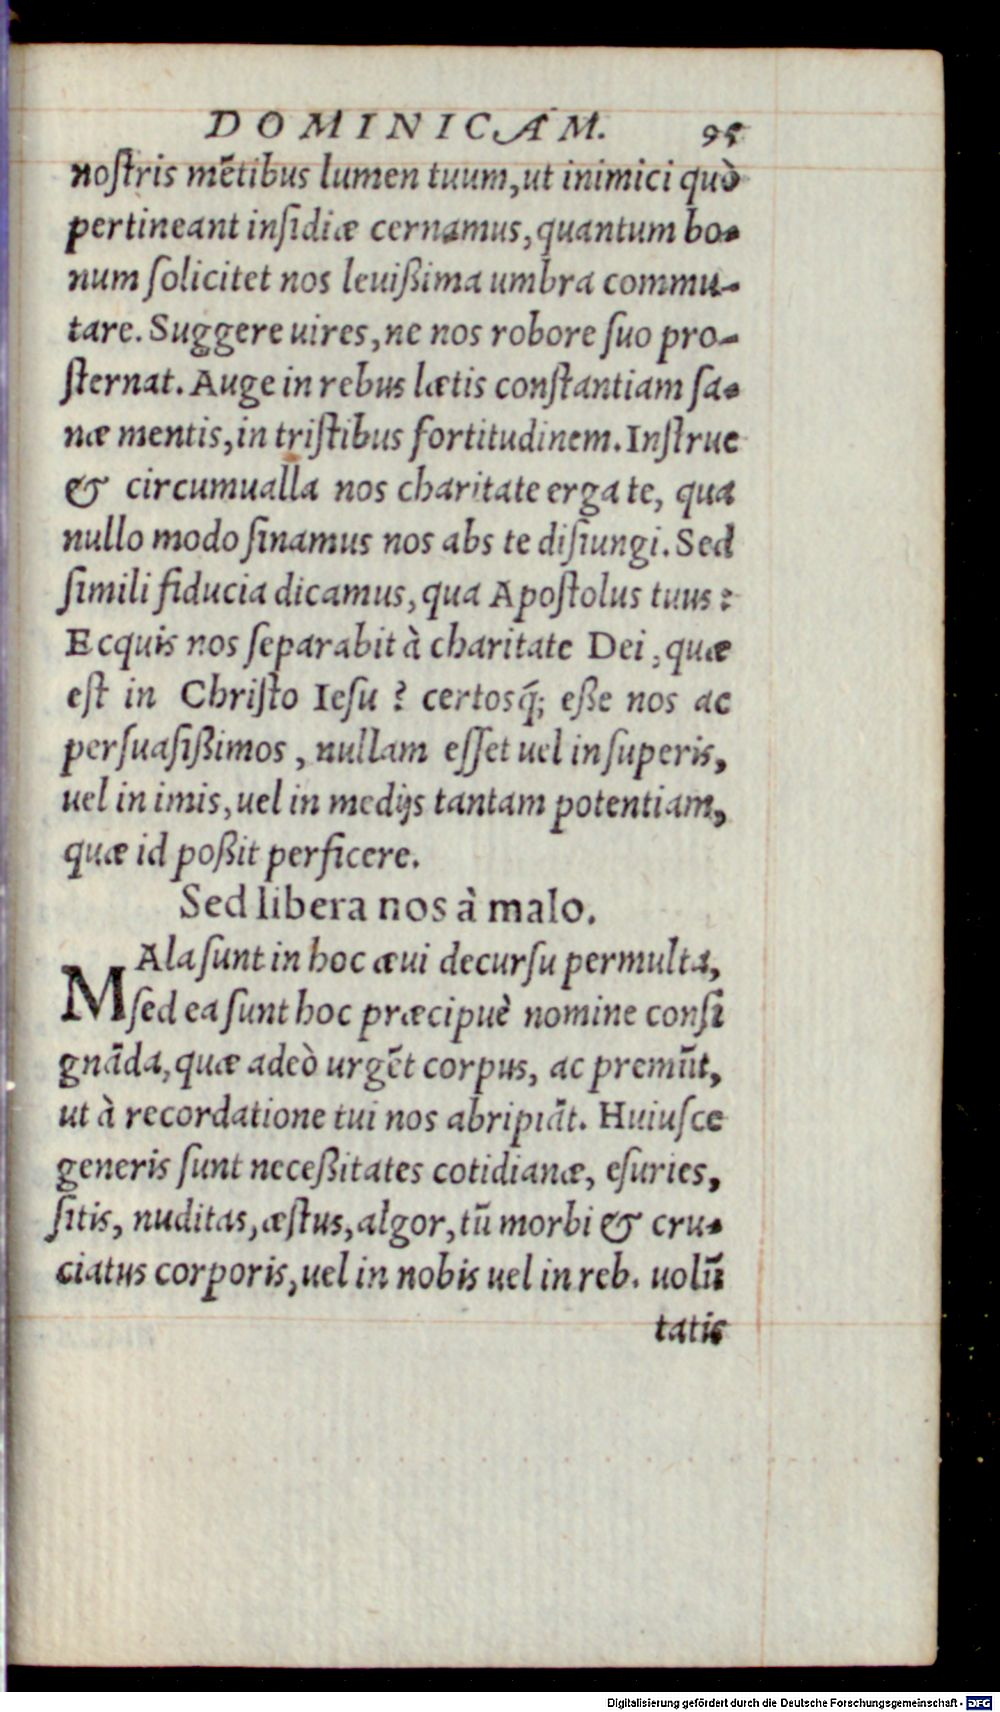 DOMINICAM. 95
noſtris mētibus lumen tuum, ut inimici quò
pertineant inſidiæ cernamus, quantum bo-
num ſolicitet nos leuißima umbra commu-
tare. Suggere uires, ne nos robore ſuo pro-
ſternat. Auge in rebus lætis conſtantiam ſa-
næ mentis, in triſtibus fortitudinem. Inſtrue
& circumualla nos charitate erga te, qua
nullo modo ſinamus nos abs te diſiungi. Sed
ſimili fiducia dicamus, qua Apoſtolus tuus:
Ecquis nos ſeparabit à charitate Dei, quæ
eſt in Chriſto Ieſu? certosq́; eße nos ac
perſuaſißimos, nullam eſſet uel in ſuperis,
uel in imis, uel in medijs tantam potentiam,
quæ id poßit perficere.
Sed libera nos à malo.
MAla ſunt in hoc æui decurſu permulta,
ſed ea ſunt hoc præcipuè nomine conſi
gnāda, quæ adeò urgēt corpus, ac premūt,
ut à recordatione tui nos abripiāt. Huiuſce
generis ſunt neceßitates cotidianæ, eſuries,
ſitis, nuditas, æſtus, algor, tū morbi & cru-
ciatus corporis, uel in nobis uel in reb. uolū
tatis
Digitalisierung gefördert durch die Deutsche Forschungsgemeinschaft - DFG